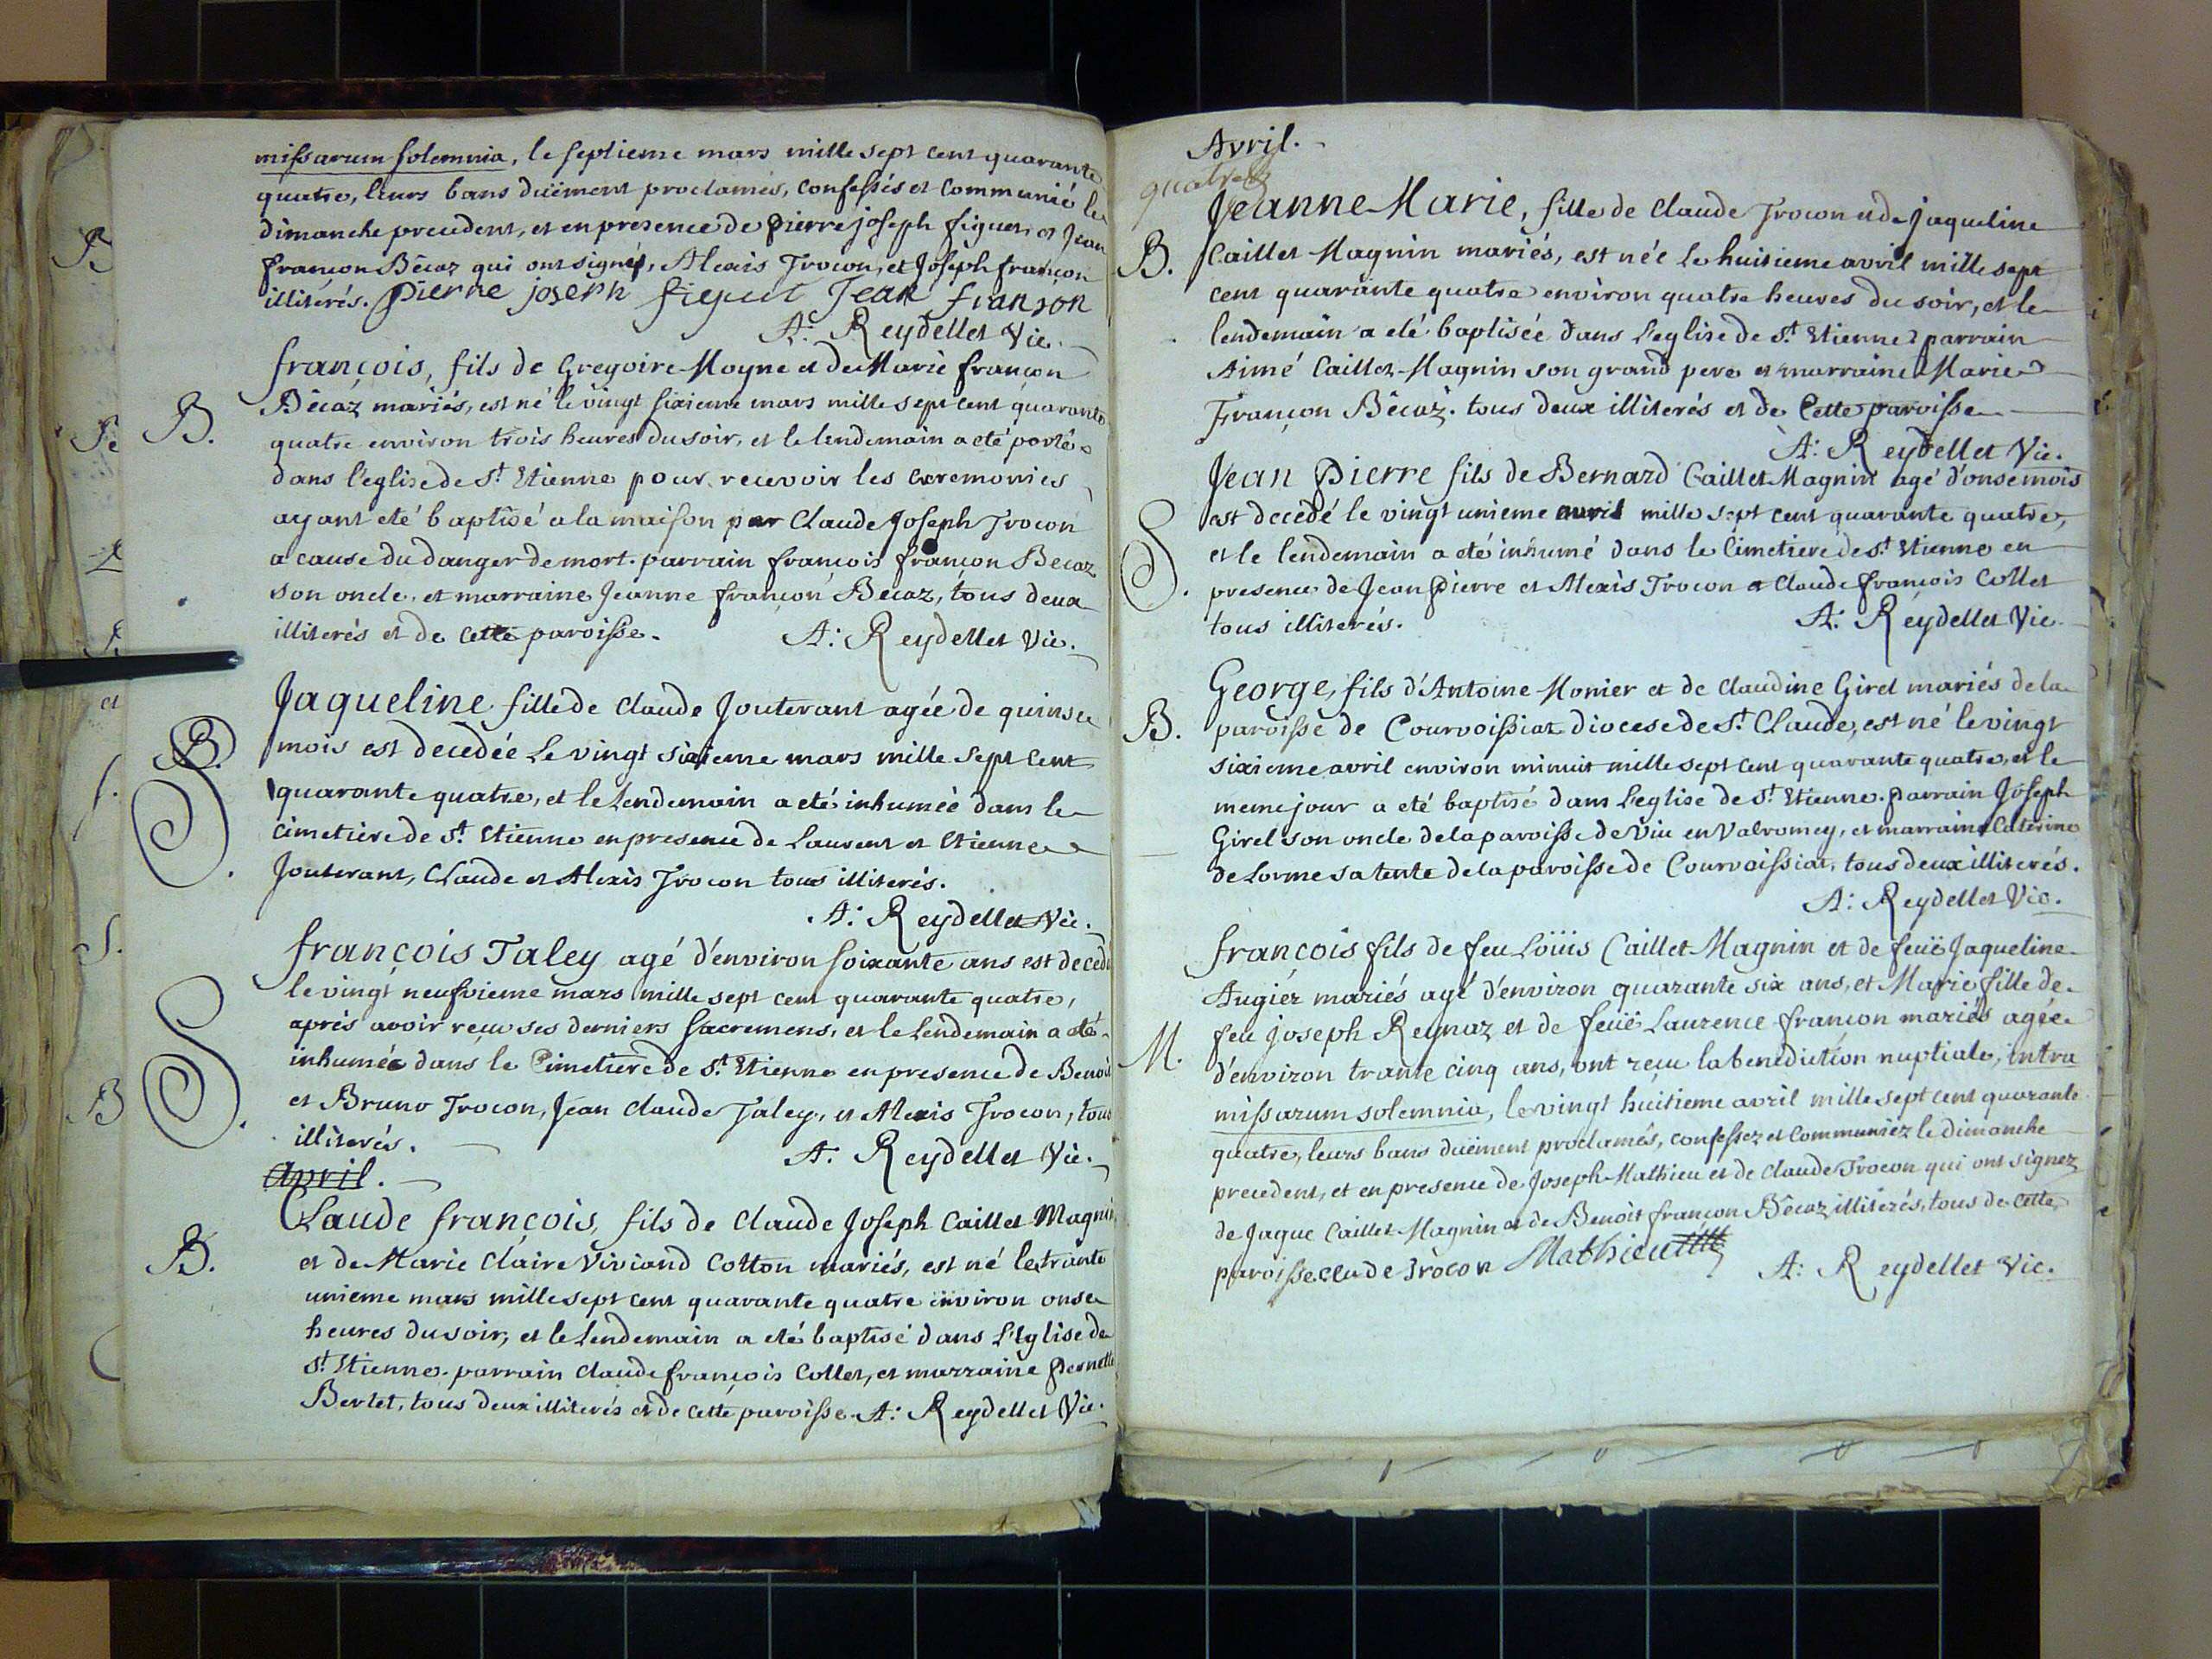 missarum solemnia, le septieme mars mille sept cent quarante
quatre, leurs bans düement proclamés, confessés et communié le
dimanche precedent, et en presence de pierre joseph figuet, et Jean
françon Bêcaz qui ont signés, Alexis Trocon, et Joseph françon
illiterés. pierre joseph figuet Jean franson
A: Reydellet Vic.
françois, fils de Gregoire Moyne et de Marie françon
B. Bêcaz mariés, est né le vingt sixieme mars mille sept cent quarante
quatre environ trois heures du soir, et le lendemain a eté porté
dans l'eglise de St Etienne pour recevoir les ceremonies
ayant eté baptisé a la maison par Claude Joseph Trocon
a cause du danger de mort. parrain francois françon Becaz
son oncle, et marraine Jeanne françon Becaz, tous deux
illiterés et de cette paroisse. A: Reydellet Vic.
Jaqueline fille de Claude Jouterant agée de quinse
B. mois est decedée le vingt sixieme mars mille sept cent
S. quarante quatre, et le lendemain a eté inhumée dans le
cimetière de St Etienne en presence de Laurent et Etienne
Jouterant, Claude et Alexis Trocon tous illiterés.
A: Reydellet Vic.
françois Taley agé d'environ soixante ans est decedé
le vingt neufvieme mars mille sept cent quarante quatre,
S. aprés avoir reçu ses derniers sacremens, et le lendemain a eté
inhumée dans le Cimetière de St Etienne en presence de Benoit
et Bruno Trocon, Jean Claude Taley, et Alexis Trocon, tous
illiterés. A: Reydellet Vic.
April.
Claude françois, fils de Claude Joseph Caillet Magnin
B. et de Marie Claire Viviand Cotton mariés, est né le trante
unieme mars mille sept cent quarante quatre environ onse
heures du soir, et le lendemain a eté baptisé dans L'Eglise de
St Etienne. parrain Claude françois Collet, et marraine Pernette
Bertet, tous deux illiterés et de cette paroisse. A: Reydellet Vic.
Avril.
quatre
Jeanne Marie, fille de Claude Trocon et de Jaqueline
B. Caillet Magnin mariés, est née le huitieme avril mille sept
cent quarante quatre environ quatre heures du soir, et le
lendemain a eté baptisée dans l'eglise de St Etienne parrain
Aimé Caillet Magnin son grand pere et marraine Marie
Françon Bêcaz. tous deux illiterés et de Cette paroisse
A: Reydellet Vic.
Jean Pierre fils de Bernard Caillet Magnin agé d'onse mois
S. est decedé le vingt unieme avril mille sept cent quarante quatre,
et le lendemain a eté inhumé dans le Cimetiere de St Etienne en
presence de Jean Pierre et Alexis Trocon et Claude francois Collet
tous illiterés. A: Reydellet Vic.
George, fils d'Antoine Monier et de Claudine Girel mariés de la
B. paroisse de Courvoissiat diocese de St Claude, est né le vingt
sixieme avril environ minuit mille sept cent quarante quatre, et le
meme jour a eté baptisé dans l'eglise de St Etienne. parrain Joseph
Girel son oncle de la paroisse de Viu en Valromey, et marraine Caterine
de Lorme sa tente de la paroisse de Courvoissiat, tous deux illiterés.
A: Reydellet Vic.
françois fils de feu Loüis Caillet Magnin et de feüe Jaqueline
Augier mariés agé d'environ quarante six ans, et Marie fille de
M. feu Joseph Reynaz et de feüe Laurence françon mariés agée
d'environ trante cinq ans, ont reçu la benediction nuptiale, intra
missarum solemnia, le vingt huitieme avril mille sept cent quarante
quatre, leurs bans düement proclamés, confessez et communiez le dimanche
precedent, et en presence de Joseph Mathieu et de Claude Trocon qui ont signez
de Jaque Caillet Magnin et de Benoit françon Bêcaz illiterés, tous de cette
paroisse. clude trocon Mathieu A: Reydellet Vic.